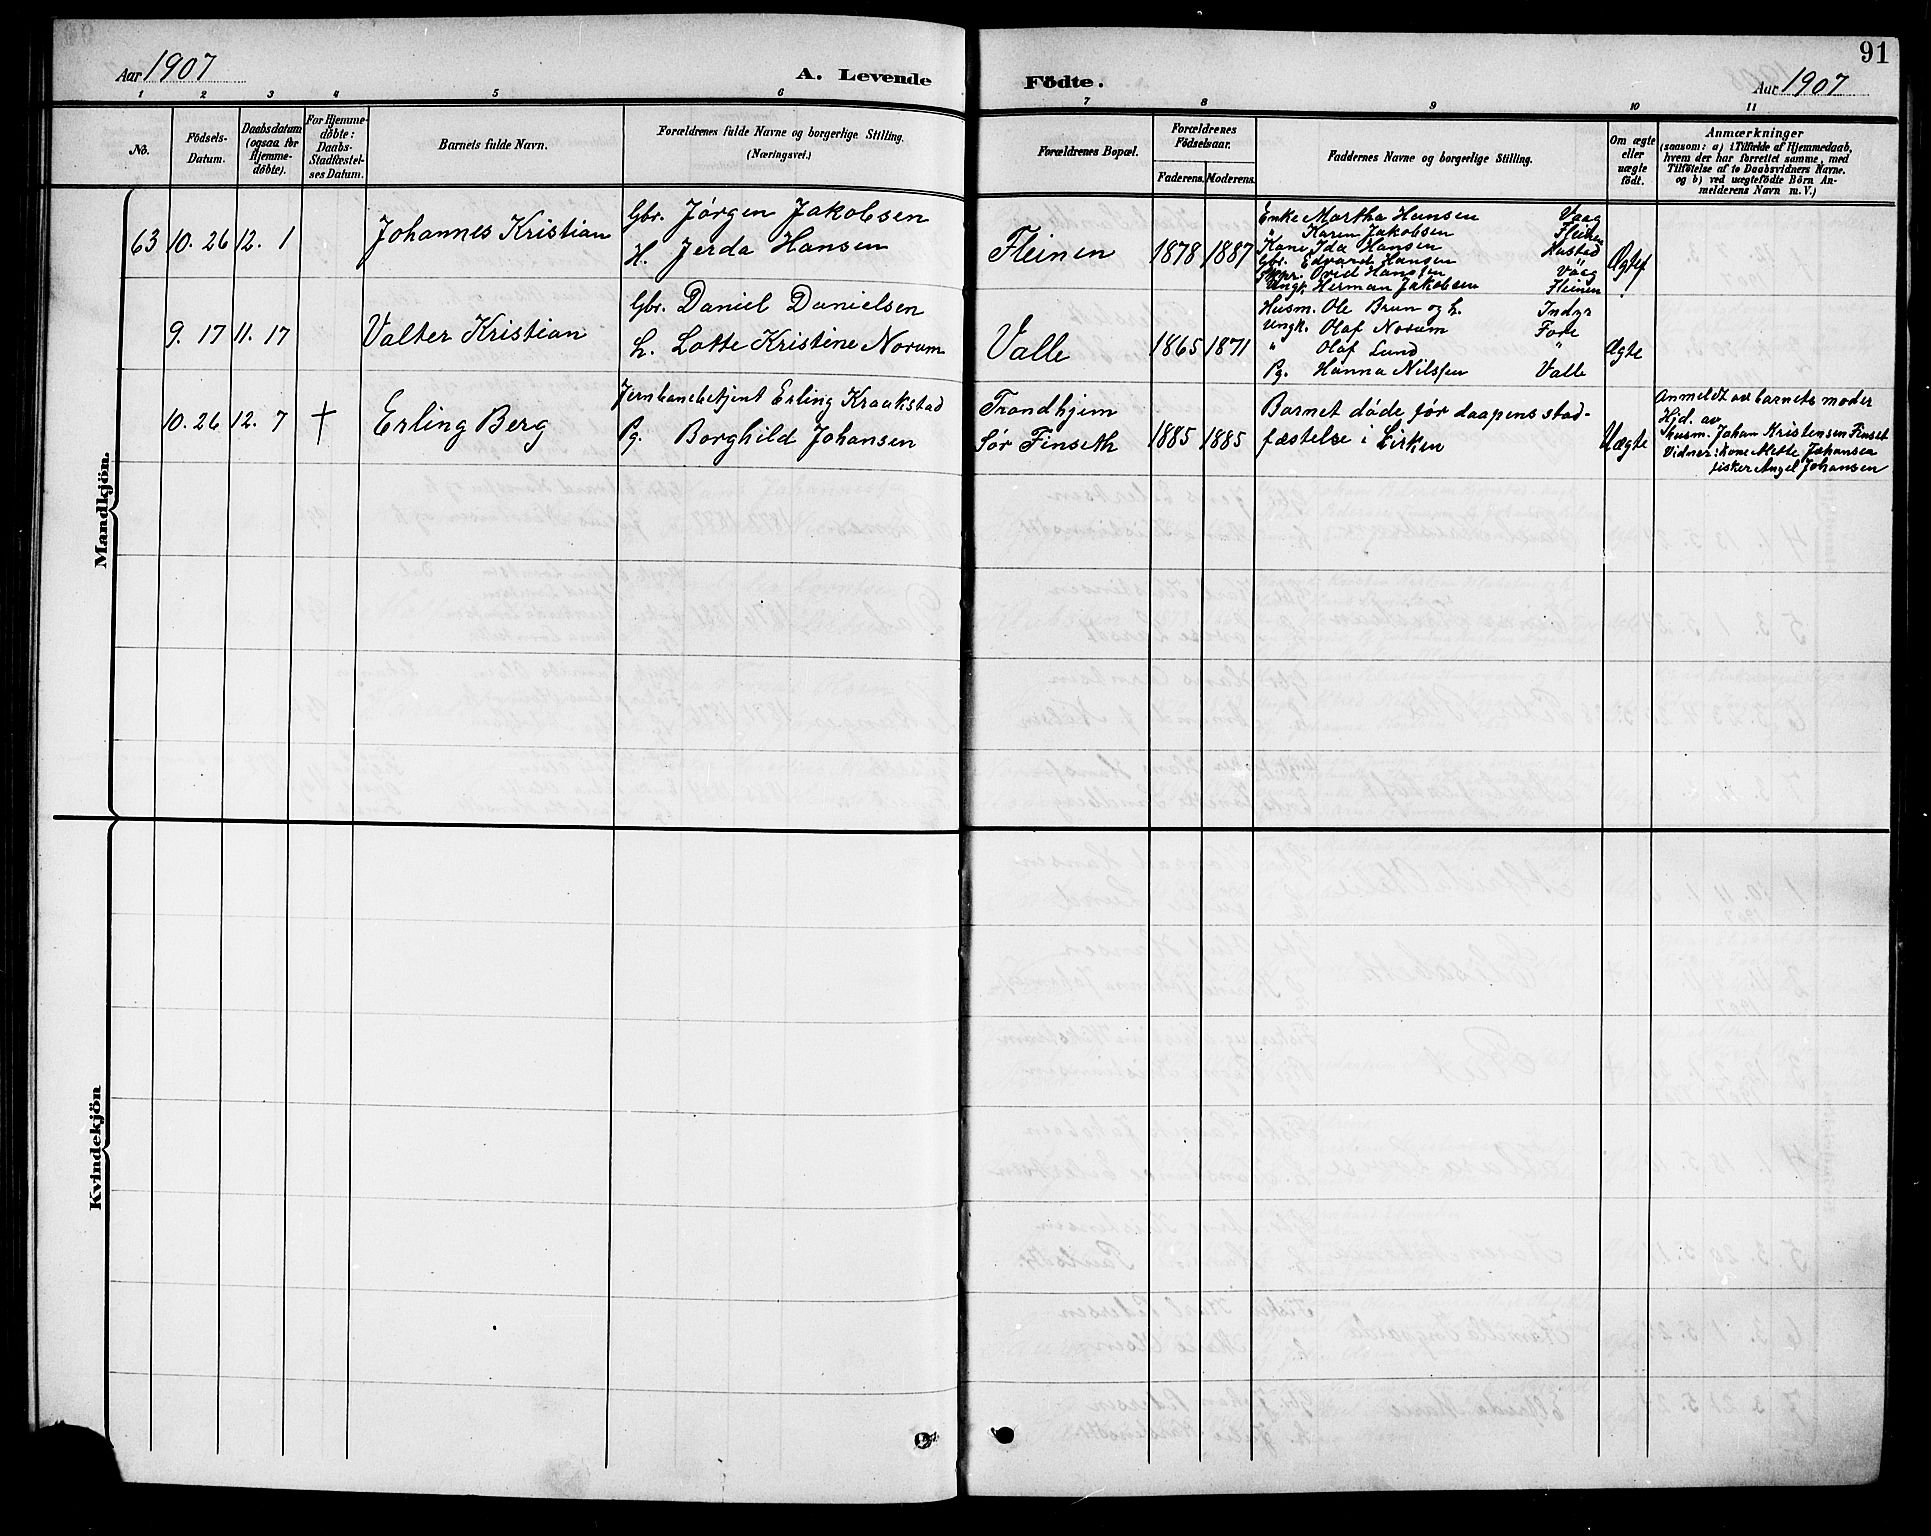 91
Aar 1907
A. Levende
Födte.
Aar 1907
1 2 3 4 5 6 7 8 9 10 11
No.
Födsels-
Datum.
Daabsdatum
(ogsaa for
Hjemme-
døbte).
For Hjemme-
døbte:
Daabs-
Stadfæstel-
ses Datum.
Barnets fulde Navn.
Forældrenes fulde Navne og borgerlige Stilling.
(Næringsvei.)
Forældrenes Bopæl.
Forældrenes
Födselsaar.
Faderens. Moderens.
Faddernes Navne og borgerlige Stilling.
Om ægte
eller
uægte
födt.
Anmærkninger
(saasom: a) i Tilfælde af Hjemmedaab,
hvem der har forrettet samme, med
Tilføielse af to Daabsvidners Navne.
og b) ved uægtefödte Börn An-
melderens Navn m. V.)
Mandkjön.
63 10. 26 12. 1
Johannes Kristian
Gbr. Jørgen Jakobsen
H. Jerda Hansen
Fleinen
1878 1887
Enke Martha Hansen Vaag
" Karen Jakobsen Fleinen
Kone Ida Hansen Rastad
Gbr. Edvard Hansen "
Ovid Hansen Vaag
Ungk. Herman Jakobsen Fleinen
Ægtef
9. 17 11. 17
Valter Kristian
Gbr. Daniel Danielsen
h. Lotte Kristine Norum
Valle
1865 1871
Husm. Ole Brun og h. Indyr
Ungk. Olaf Norum Fore
" Olaf Lund "
Pg. Hanna Nilssen Valle
Ægte
10. 26 12. 7 †
Erling Berg
Jernbanebetjent Erling Kraakstad
Pg. Borghild Johansen
Trondhjem
Sør Finseth
1885 1885
Barnet døde før daapens stad-
fæstelse i kirken
Uægte
Anmeldt av barnets moder
Hjd. av
husm. Johan Kristensen Finset
Vidner: kone Mette Johansen
fisker Angel Johansen
Kvindekjön